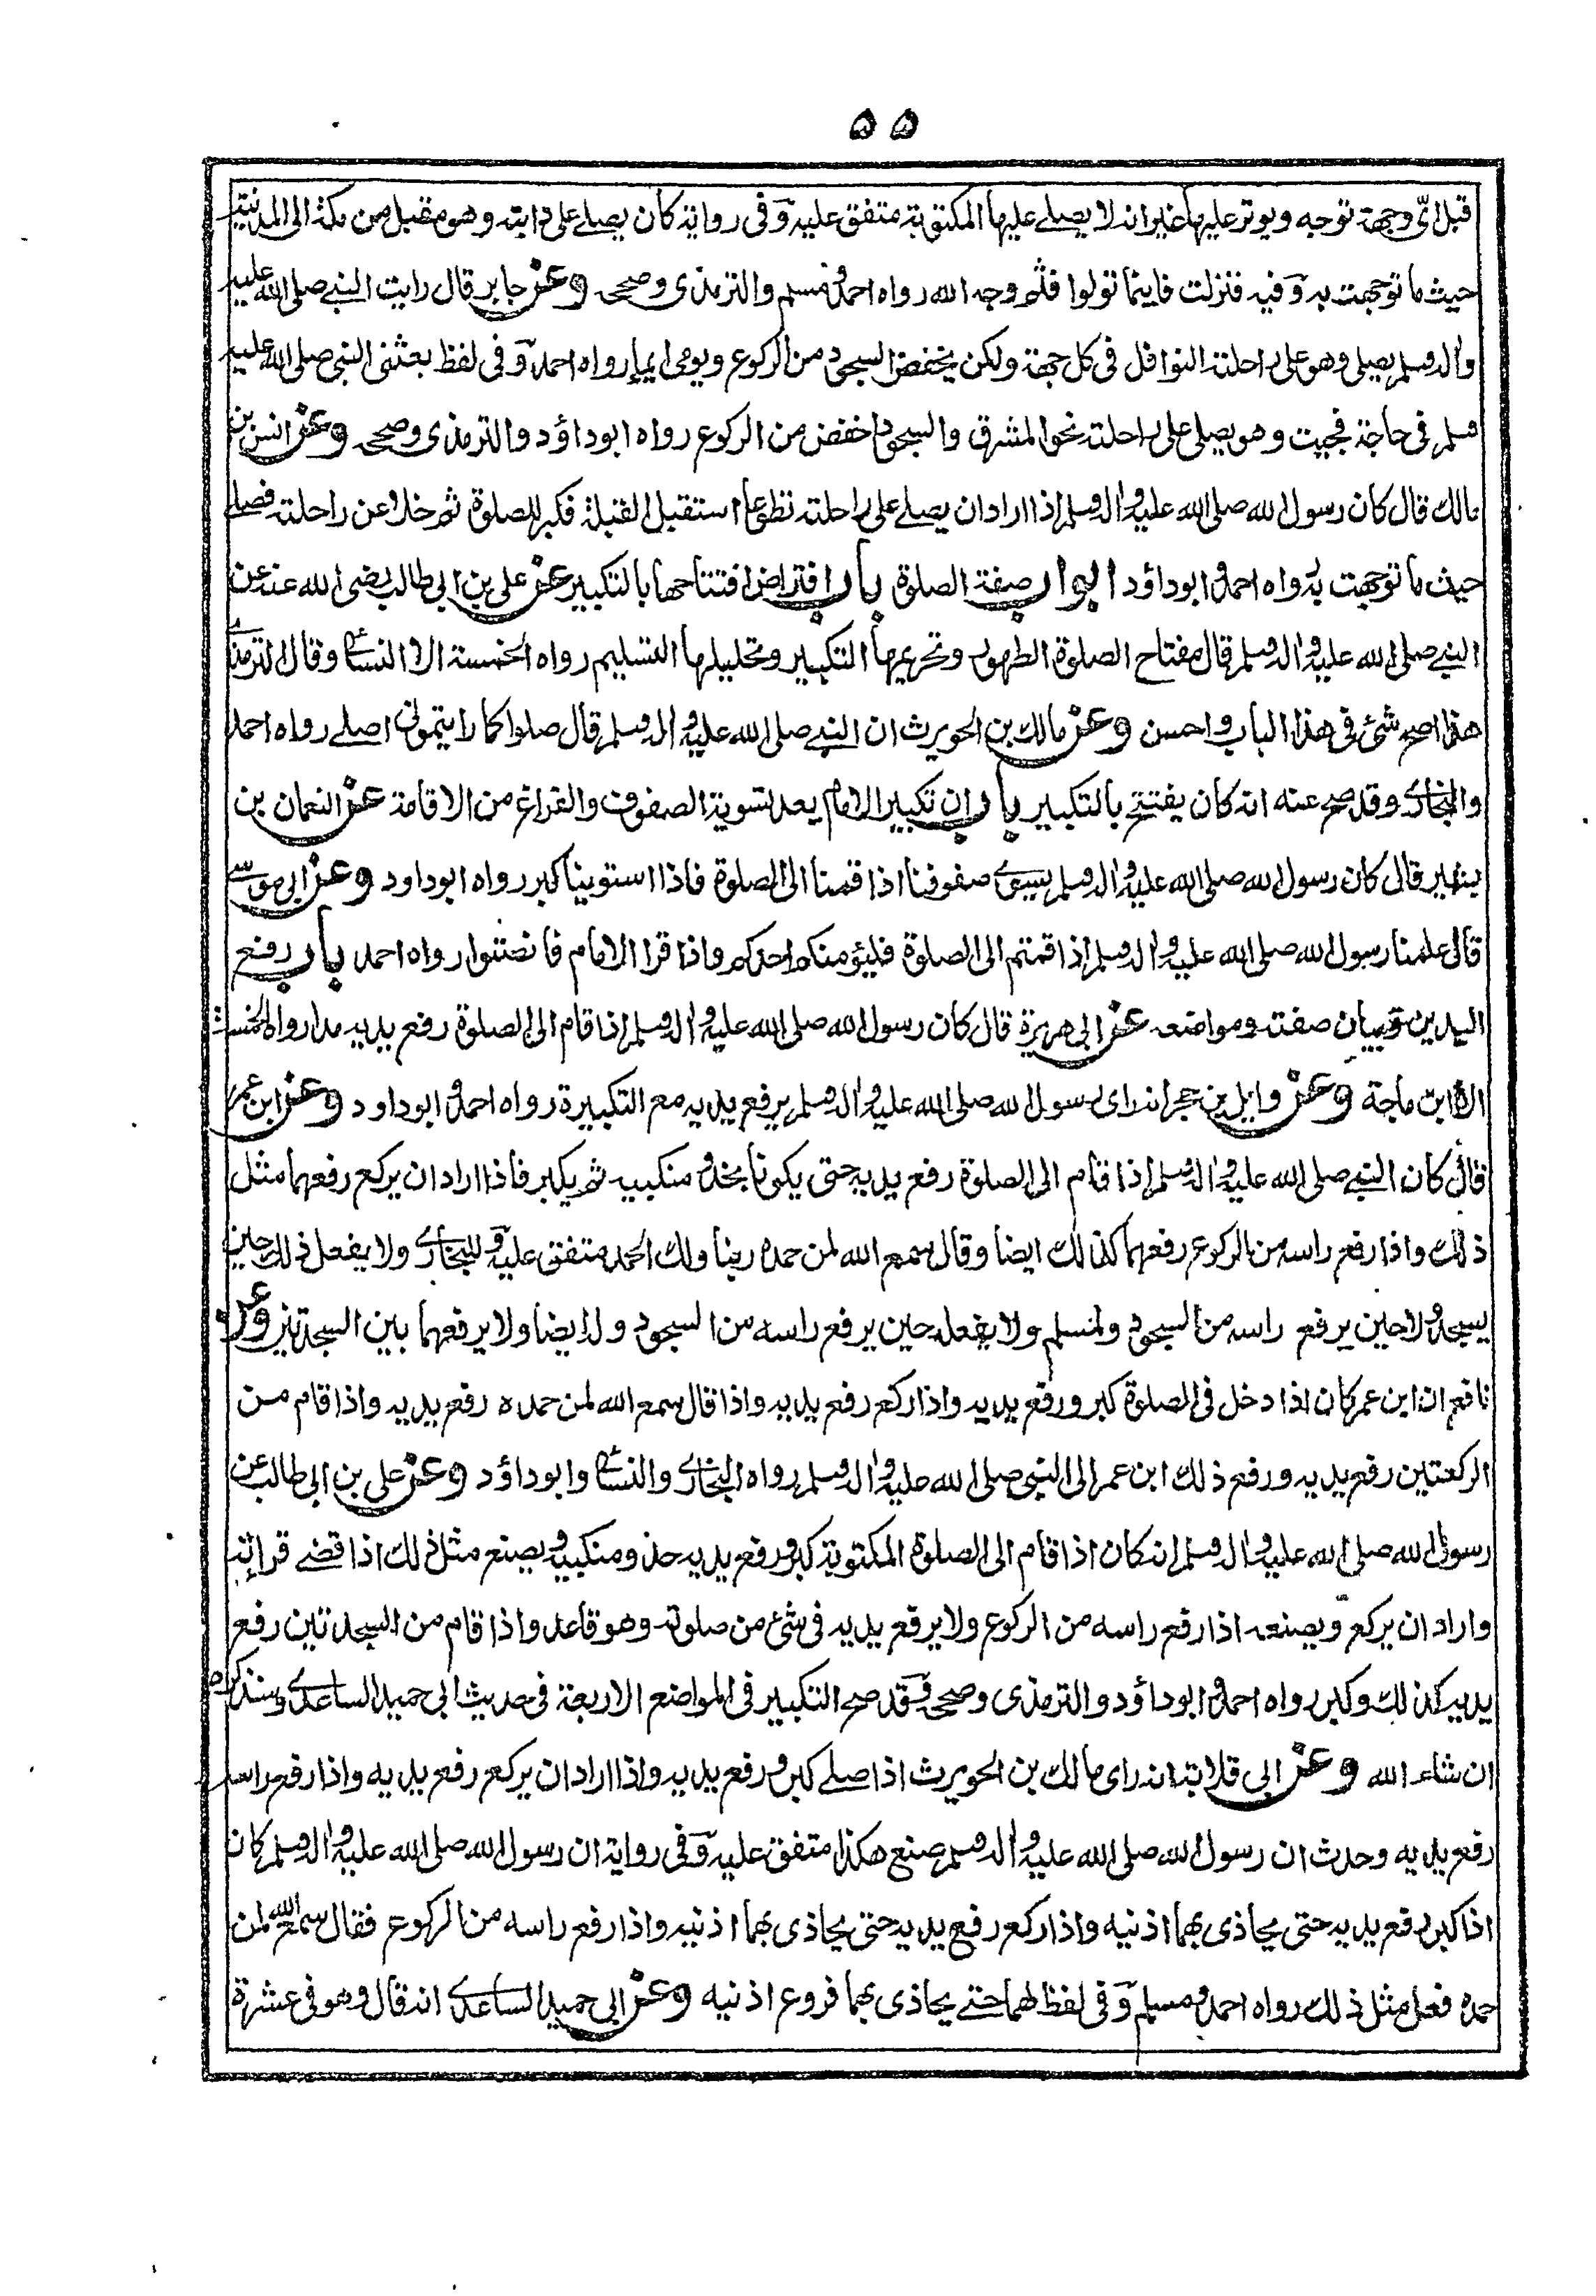 ۵۵
قبل اىّ وجهة توجه ويوتر عليها غير انه لا يصلے عليها المكتوبة متفق عليه وفى رواية كان يصلے على دابته وهو مقبل من مكة الى المدينة
حيث ما توجهت به وفيه فنزلت فاينما تولوا فثم وجه الله رواه احمد ومسلم والترمذى وصححه وعن جابر قال رايت النبے صلى الله عليه
واله وسلم يصلى وهو على راحلته النوافل فى كل جهة ولكن يخفض السجود من الركوع ويومى ايماء رواه احمد وفى لفظ بعثنى النبى صلى الله عليه
وسلم فى حاجة فجيت وهو يصلى على راحلته نحو المشرق والسجود اخفض من الركوع رواه ابوداؤد والترمذى وصححه وعن انس بن
مالك قال كان رسول الله صلى الله عليه واله وسلم اذا اراد ان يصلے على راحلته تطوعا استقبل القبلة فكبر للصلوة ثم خلا عن راحلته فصلے
حيث ما توجهت به رواه احمد وابوداؤد ابواب صفة الصلوة باب افتراض افتتاحها بالتكبير عن على بن ابى طالب رضى الله عنه عن
النبے صلى الله عليه واله وسلم قال مفتاح الصلوة الطهور وتحريمها التكبير وتحليلها التسليم رواه الخمسة الا النسائے وقال الترمذے
هذا اصح شئ فى هذا الباب واحسن وعن مالك بن الحويرث ان النبے صلى الله عليه واله وسلم قال صلوا كما رايتمونى اصلے رواه احمد
والبخارے وقد صح عنه انه كان يفتتح بالتكبير باب ان تكبير الامام بعد تسوية الصفوف والفراغ من الاقامة عن النعمان بن
بشير قال كان رسول الله صلى الله عليه واله وسلم يسوے صفوفنا اذا قمنا الى الصلوة فاذا استوينا كبر رواه ابوداود وعن ابى موسے
قال علمنا رسول الله صلى الله عليه واله وسلم اذا قمتم الى الصلوة فليؤمنكم احدكم واذا قرا الامام فانصتوا رواه احمد باب رفع
اليدين وبيان صفته ومواضعه عن ابى هريرة قال كان رسول الله صلى الله عليه واله وسلم اذا قام الى الصلوة رفع يديه مدا رواه الخمسة
الا ابن ماجة وعن وايل بن حجر انه راى رسول الله صلى الله عليه واله وسلم يرفع يديه مع التكبيرة رواه احمد وابوداود وعن ابن عمر
قال كان النبے صلى الله عليه واله وسلم اذا قام الى الصلوة رفع يديه حتى يكونا بحذو منكبيه ثم يكبر فاذا اراد ان يركع رفعهما مثل
ذلك واذا رفع راسه من الركوع رفعهما كذلك ايضا وقال سمع الله لمن حمده ربنا ولك الحمد متفق عليه وللبخارے ولا يفعل ذلك حين
يسجد ولا حين يرفع راسه من السجود ولمسلم ولا يفعله حين يرفع راسه من السجود وله ايضا ولا يرفعهما بين السجدتين وعن
نافع ان ابن عمر كان اذا دخل فى الصلوة كبر ورفع يديه واذا ركع رفع يديه واذا قال سمع الله لمن حمده رفع يديه واذا قام من
الركعتين رفع يديه ورفع ذلك ابن عمر الى النبى صلى الله عليه واله وسلم رواه البخارے والنسائے وابوداؤد وعن على بن ابى طالب عن
رسول الله صلى الله عليه واله وسلم انه كان اذا قام الى الصلوة المكتوبة كبر ورفع يديه حذو منكبيه ويصنع مثل ذلك اذا قضے قراءته
واراد ان يركع ويصنعه اذا رفع راسه من الركوع ولا يرفع يديه فى شئ من صلوته وهو قاعد واذا قام من السجدتين رفع
يديه كذلك وكبر رواه احمد وابوداؤد والترمذى وصححه فقد صح التكبير فى المواضع الاربعة فى حديث ابى حميد الساعدے وسنذكره
ان شاء الله وعن ابى قلابة انه راى مالك بن الحويرث اذا صلے كبر ورفع يديه واذا اراد ان يركع رفع يديه واذا رفع راسه
رفع يديه وحدث ان رسول الله صلى الله عليه واله وسلم صنع هكذا متفق عليه وفى رواية ان رسول الله صلى الله عليه واله وسلم كان
اذا كبر رفع يديه حتى يحاذى بهما اذنيه واذا ركع رفع يديه حتى يحاذى بهما اذنيه واذا رفع راسه من الركوع فقال سمع الله لمن
حمده فعل مثل ذلك رواه احمد ومسلم وفى لفظ لهما حتے يحاذى بهما فروع اذنيه وعن ابى حميد الساعدے انه قال وهو فى عشرة